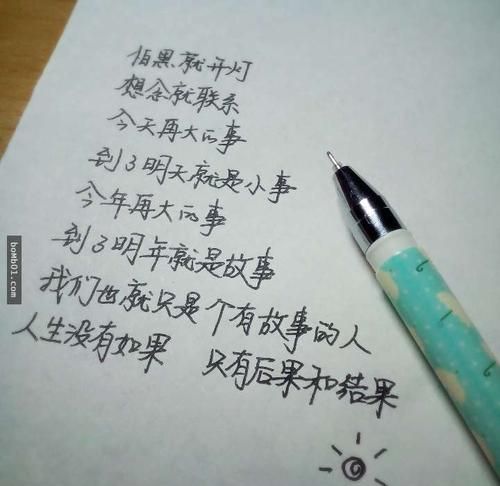 怕黑就开灯
想念就联系
今天再大的事
到了明天就是小事
今年再大的事
到了明年就是故事
我们也就只是个有故事的人
人生没有如果 只有后果和结果
boMb01.com